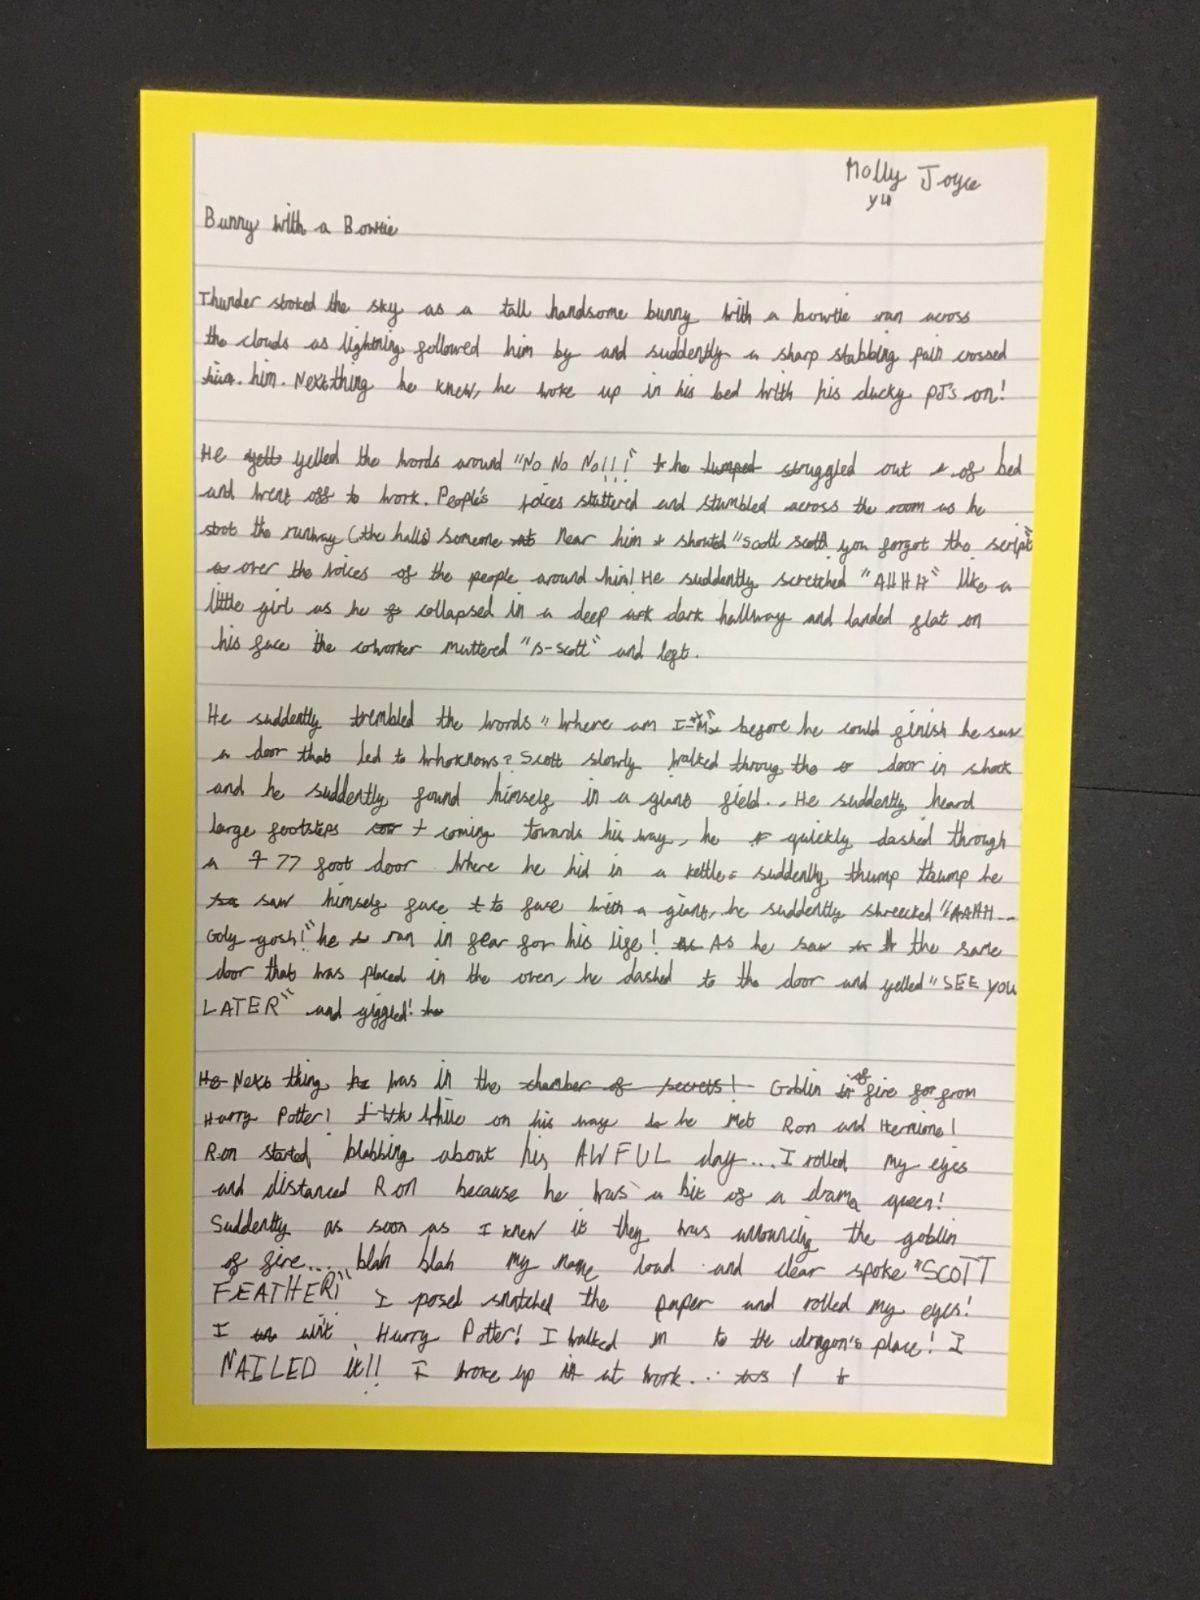 Molly Joyce
Y4
Bunny with a Bowtie
Thunder stroked the sky as a tall handsome bunny with a bowtie ran across
the clouds as lightning followed him by and suddenly a sharp stabbing pain crossed
him. Next thing he knew, he woke up in his bed with his ducky PJ's on!
He yelled the words around "No No No!!!" he struggled out of bed
and went off to work. People's voices stuttered and stumbled across the room as he
the runway (the halls) someone near him "Scott Scott you forgot the script"
over the voices of the people around him! He suddenly scretched "AHHH" like a
little girl as he collapsed in a deep dark hallway and landed flat on
his face the coworker muttered "S-Scott" and left.
He suddently trembled the words "Where am I-" before he could finish he saw
a door that led to whoknows? Scott slowly walked throug the door in shock
and he suddently found himself in a giant field.. He suddently heard
large footsteps coming towards his way, he quickly dashed through
a 77 foot door where he hid in a kettle= suddenlly thump thump he
saw himself face to face with a giant, he suddently shreecked "AAHH...
Goly gosh!" he ran in fear for his life! As he saw the same
door that was placed in the oven, he dashed to the door and yelled "SEE YOU
LATER" and giggled!
Next thing was in the Goblin of fire from
Harry Potter! while on his way he met Ron and Hermione!
Ron started blabbing about his AWFUL day...I rolled my eyes
and distanced Ron because he was a bit of a drama queen!
Suddently as soon as I knew it they was the goblin
of fire.... blah blah my name loud and clear spoke "SCOTT
FEATHER!" I posed snatched the paper and rolled my eyes!
I Harry Potter! I walked to the dragon's place! I
NAILED it!! I woke up at work...